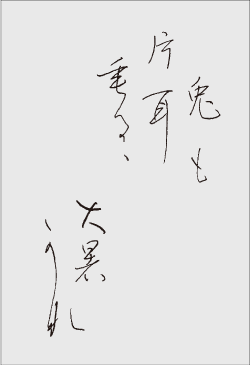 兎も
片耳
垂るゝ
大暑
かな